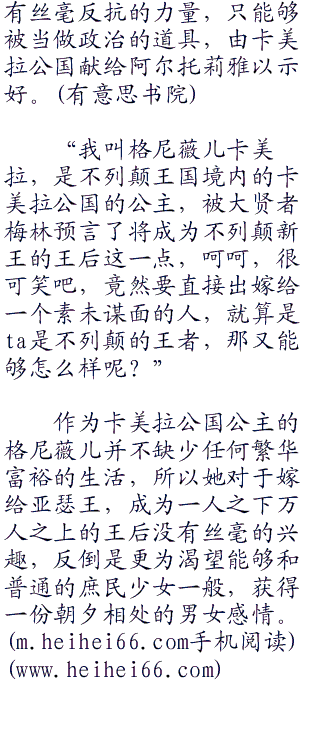 有丝毫反抗的力量，只能够
被当做政治的道具，由卡美
拉公国献给阿尔托莉雅以示
好。(有意思书院)
“我叫格尼薇儿卡美
拉，是不列颠王国境内的卡
美拉公国的公主，被大贤者
梅林预言了将成为不列颠新
王的王后这一点，呵呵，很
可笑吧，竟然要直接出嫁给
一个素未谋面的人，就算是
ta是不列颠的王者，那又能
够怎么样呢？”
作为卡美拉公国公主的
格尼薇儿并不缺少任何繁华
富裕的生活，所以她对于嫁
给亚瑟王，成为一人之下万
人之上的王后没有丝毫的兴
趣，反倒是更为渴望能够和
普通的庶民少女一般，获得
一份朝夕相处的男女感情。
(m.heihei66.com手机阅读)
(www.heihei66.com)